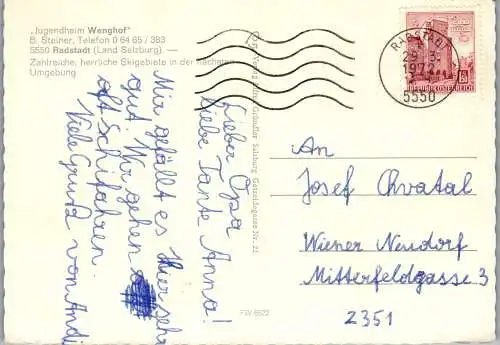 „Jugendheim Wenghof"
B. Steiner, Telefon 0 64 65 / 383
5550 Radstadt (Land Salzburg). —
Zahlreiche, herrliche Skigebiete in der nächsten
Umgebung
Lieber Opa
liebe Tante Anna!
Mir gefällt es hier sehr
gut. Wir gehen
oft schifahren.
Viele Grüße von Andi
Salzburg Getreidegasse Nr. 21
FW 6522
RADSTADT
5550
REPUBLIK ÖSTERREICH
An
Josef Chvatal
Wiener Neudorf
Mitterfeldgasse 3
2351